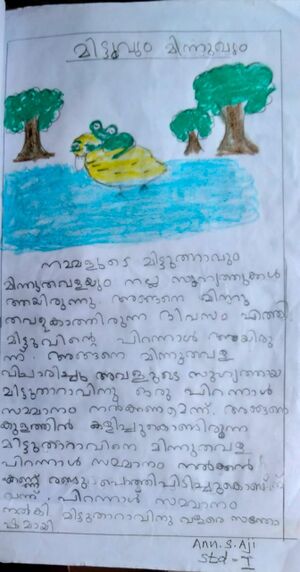 മിട്ടുവും മിന്നുവും
നമ്മളുടെ മിട്ടുതാറാവും
മിന്നുതവളയും നല്ല സുഹൃത്തുക്കൾ
ആയിരുന്നു. അങ്ങനെ മിന്നു
തവളകാത്തിരുന്ന ദിവസം എത്തി.
മിട്ടുവിന്റെ പിറന്നാൾ ആയിരു
ന്നു. അങ്ങനെ മിന്നുതവള
വിചാരിച്ചു അവളുടെ സുഹൃത്തായ
മിട്ടുതാറാവിനു ഒരു പിറന്നാൾ
സമ്മാനം നൽകണമെന്ന്. അങ്ങനെ
കുളത്തിൽ കളിച്ചുകൊണ്ടിരുന്ന
മിട്ടുതാറാവിനെ മിന്നുതവള
പിറന്നാൾ സമ്മാനം നൽകാൻ
കണ്ണ് രണ്ടും പൊത്തിപിടിച്ചുകൊണ്ട്
വന്ന്. പിറന്നാൾ സമ്മാനം
നൽകി മിട്ടുതാറാവിനു വളരെ സന്തോ
ഷമായി
Ann.S.Aji
Std - I